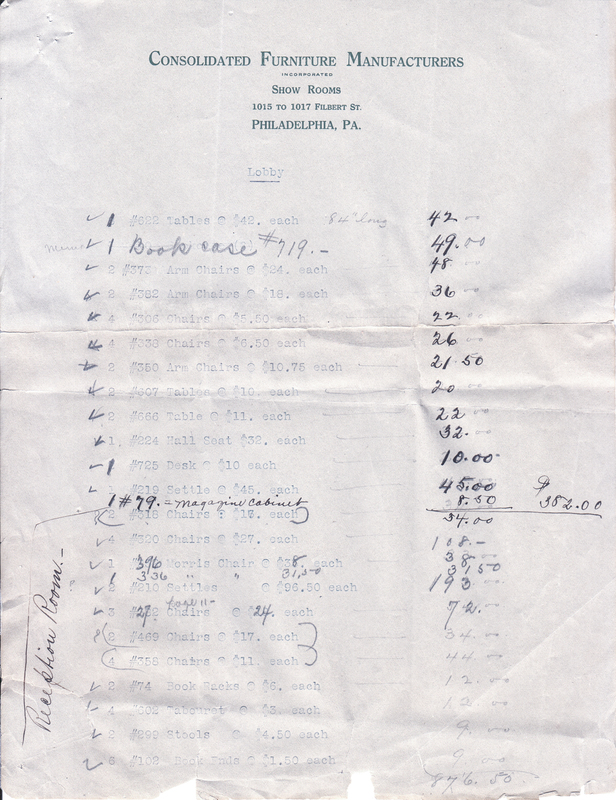 CONSOLIDATED FURNITURE MANUFACTURERS
INCORPORATED
SHOW ROOMS
1015 TO 1017 FILBERT ST.
PHILADELPHIA, PA.
Lobby
✓ 1 #622 Tables @ $42. each 84" long 42.00
✓ 1 Book case #719.- 49.00
✓ 2 #373 Arm Chairs @ $24. each 48
✓ 2 #382 Arm Chairs @ $18. each 36
✓ 4 #306 Chairs @ $5.50 each 22
✓ 4 #338 Chairs @ $6.50 each 26
✓ 2 #350 Arm Chairs @ $10.75 each 21.50
✓ 2 #607 Tables @ $10. each 20
✓ 2 #666 Table @ $11. each 22
✓ 1. #224 Hall Seat @ $32. each 32.-
1 #725 Desk @ $10 each 10.00
✓ #219 Settle @ $45. each 45.00
1 #79.- magazine cabinet 8.50 $ 382.00
(2 #318 Chairs @ each) 34.00
✓ 4 #320 Chairs @ $27. each 108.-
✓ 1 396 Morris Chair @ $38. each 38-
1 336 " " 31.50 31.50
✓ 2 #210 Settles @ $96.50 each 193
✓ 3 Chairs @ $24. each 72.-
(2 #469 Chairs @ $17. each) 34.00
(4 #358 Chairs @ $11. each) 44.00
✓ 2 #74 Book Racks @ $6. each 12.00
✓ 4 #602 Tabouret @ $3. each 12.00
✓ 2 #299 Stools @ $4.50 each 9.00
✓ 6 #102 Book Ends @ $1.50 each 9.00
876.50
Reception Room.-